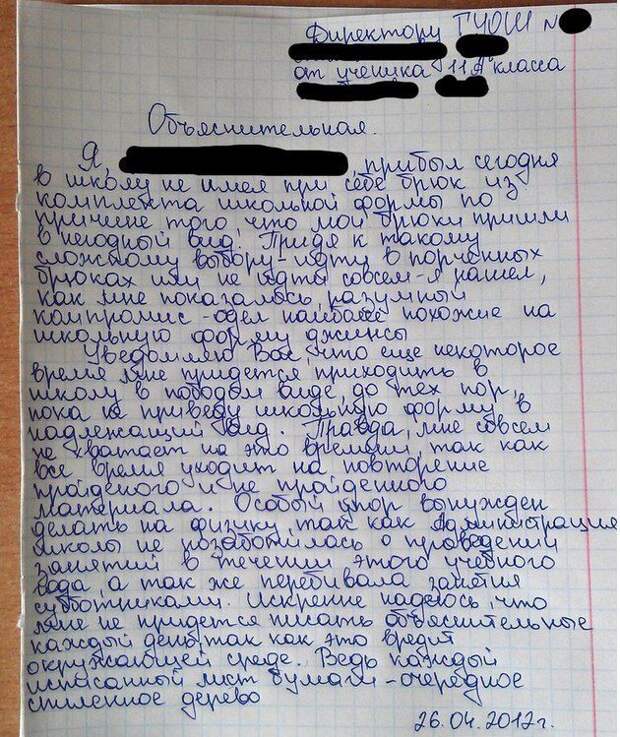 Директору ГУОШ №
от ученика 11 А класса
Объяснительная.
Я, , прибыл сегодня
в школу не имея при себе брюк из
комплекта школьной формы по
причине того что мои брюки пришли
в негодный вид! Придя к такому
сложному выбору - идти в порченных
брюках или не идти совсем - я нашел,
как мне показалось, разумный
компромис - одел наиболее похожие на
школьную форму джинсы
Уведомляю Вас, что еще некоторое
время мне придется приходить в
школу в подобном виде, до тех пор,
пока не приведу школьную форму в
надлежащий вид. Правда, мне совсем
не хватает на это времени, так как
все время уходит на повторение
пройденого и не пройденного
материала. Особый упор вынужден
делать на физику, так как Администрация
школы не позаботилась о проведении
занятий в течении этого учебного
года, а так же перебивала занятия
субботниками. Искренне надеюсь, что
мне не придется писать объяснительные
каждый день, так как это вредит
окружающей среде. Ведь каждый
исписанный лист бумаги - очередное
спиленное дерево
26.04.2012г.